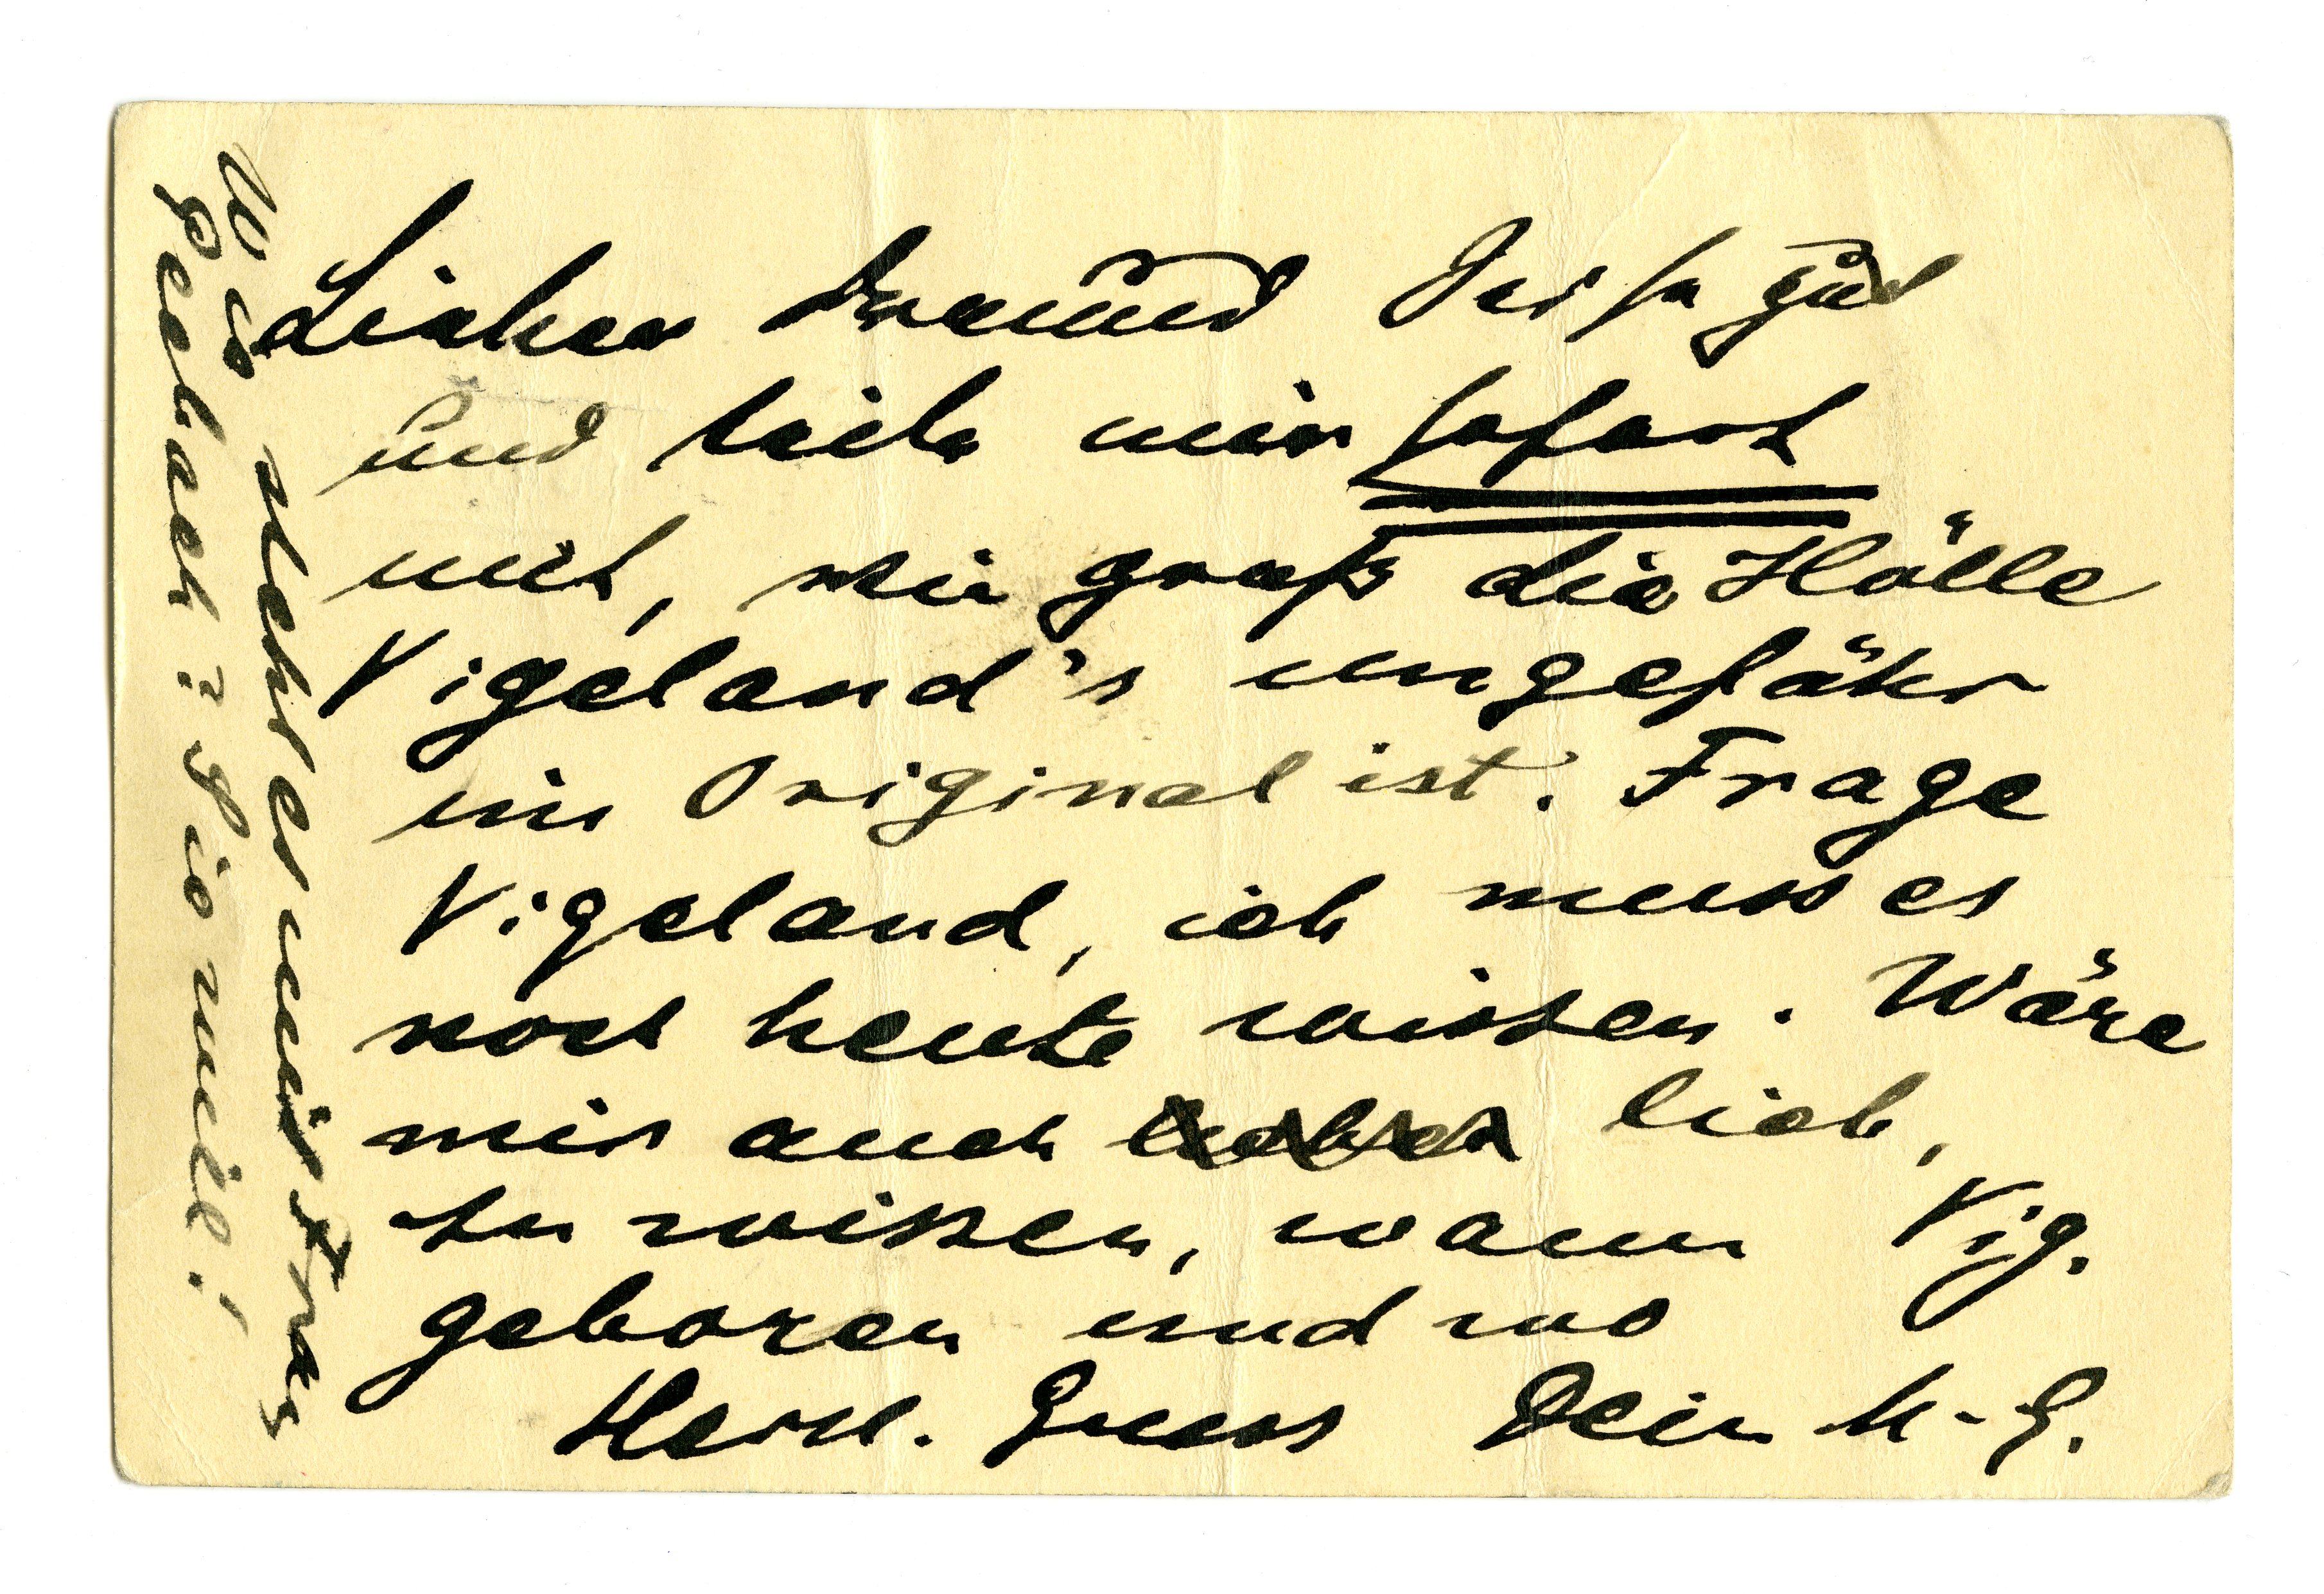 Lieber Freund Sei so gut
und teile mir sofort
mit, wie groß die Hölle
Vigeland's ungefähr
im Original ist. Frage
Vigeland, ich muss es
noch heute wissen. Wäre
mir auch lieb,
zu wissen, wann Vig.
geboren und wo
Herzl. Gruss Dein M-G.
Wo steht es mit Frag
Peerbach? Gib mir!